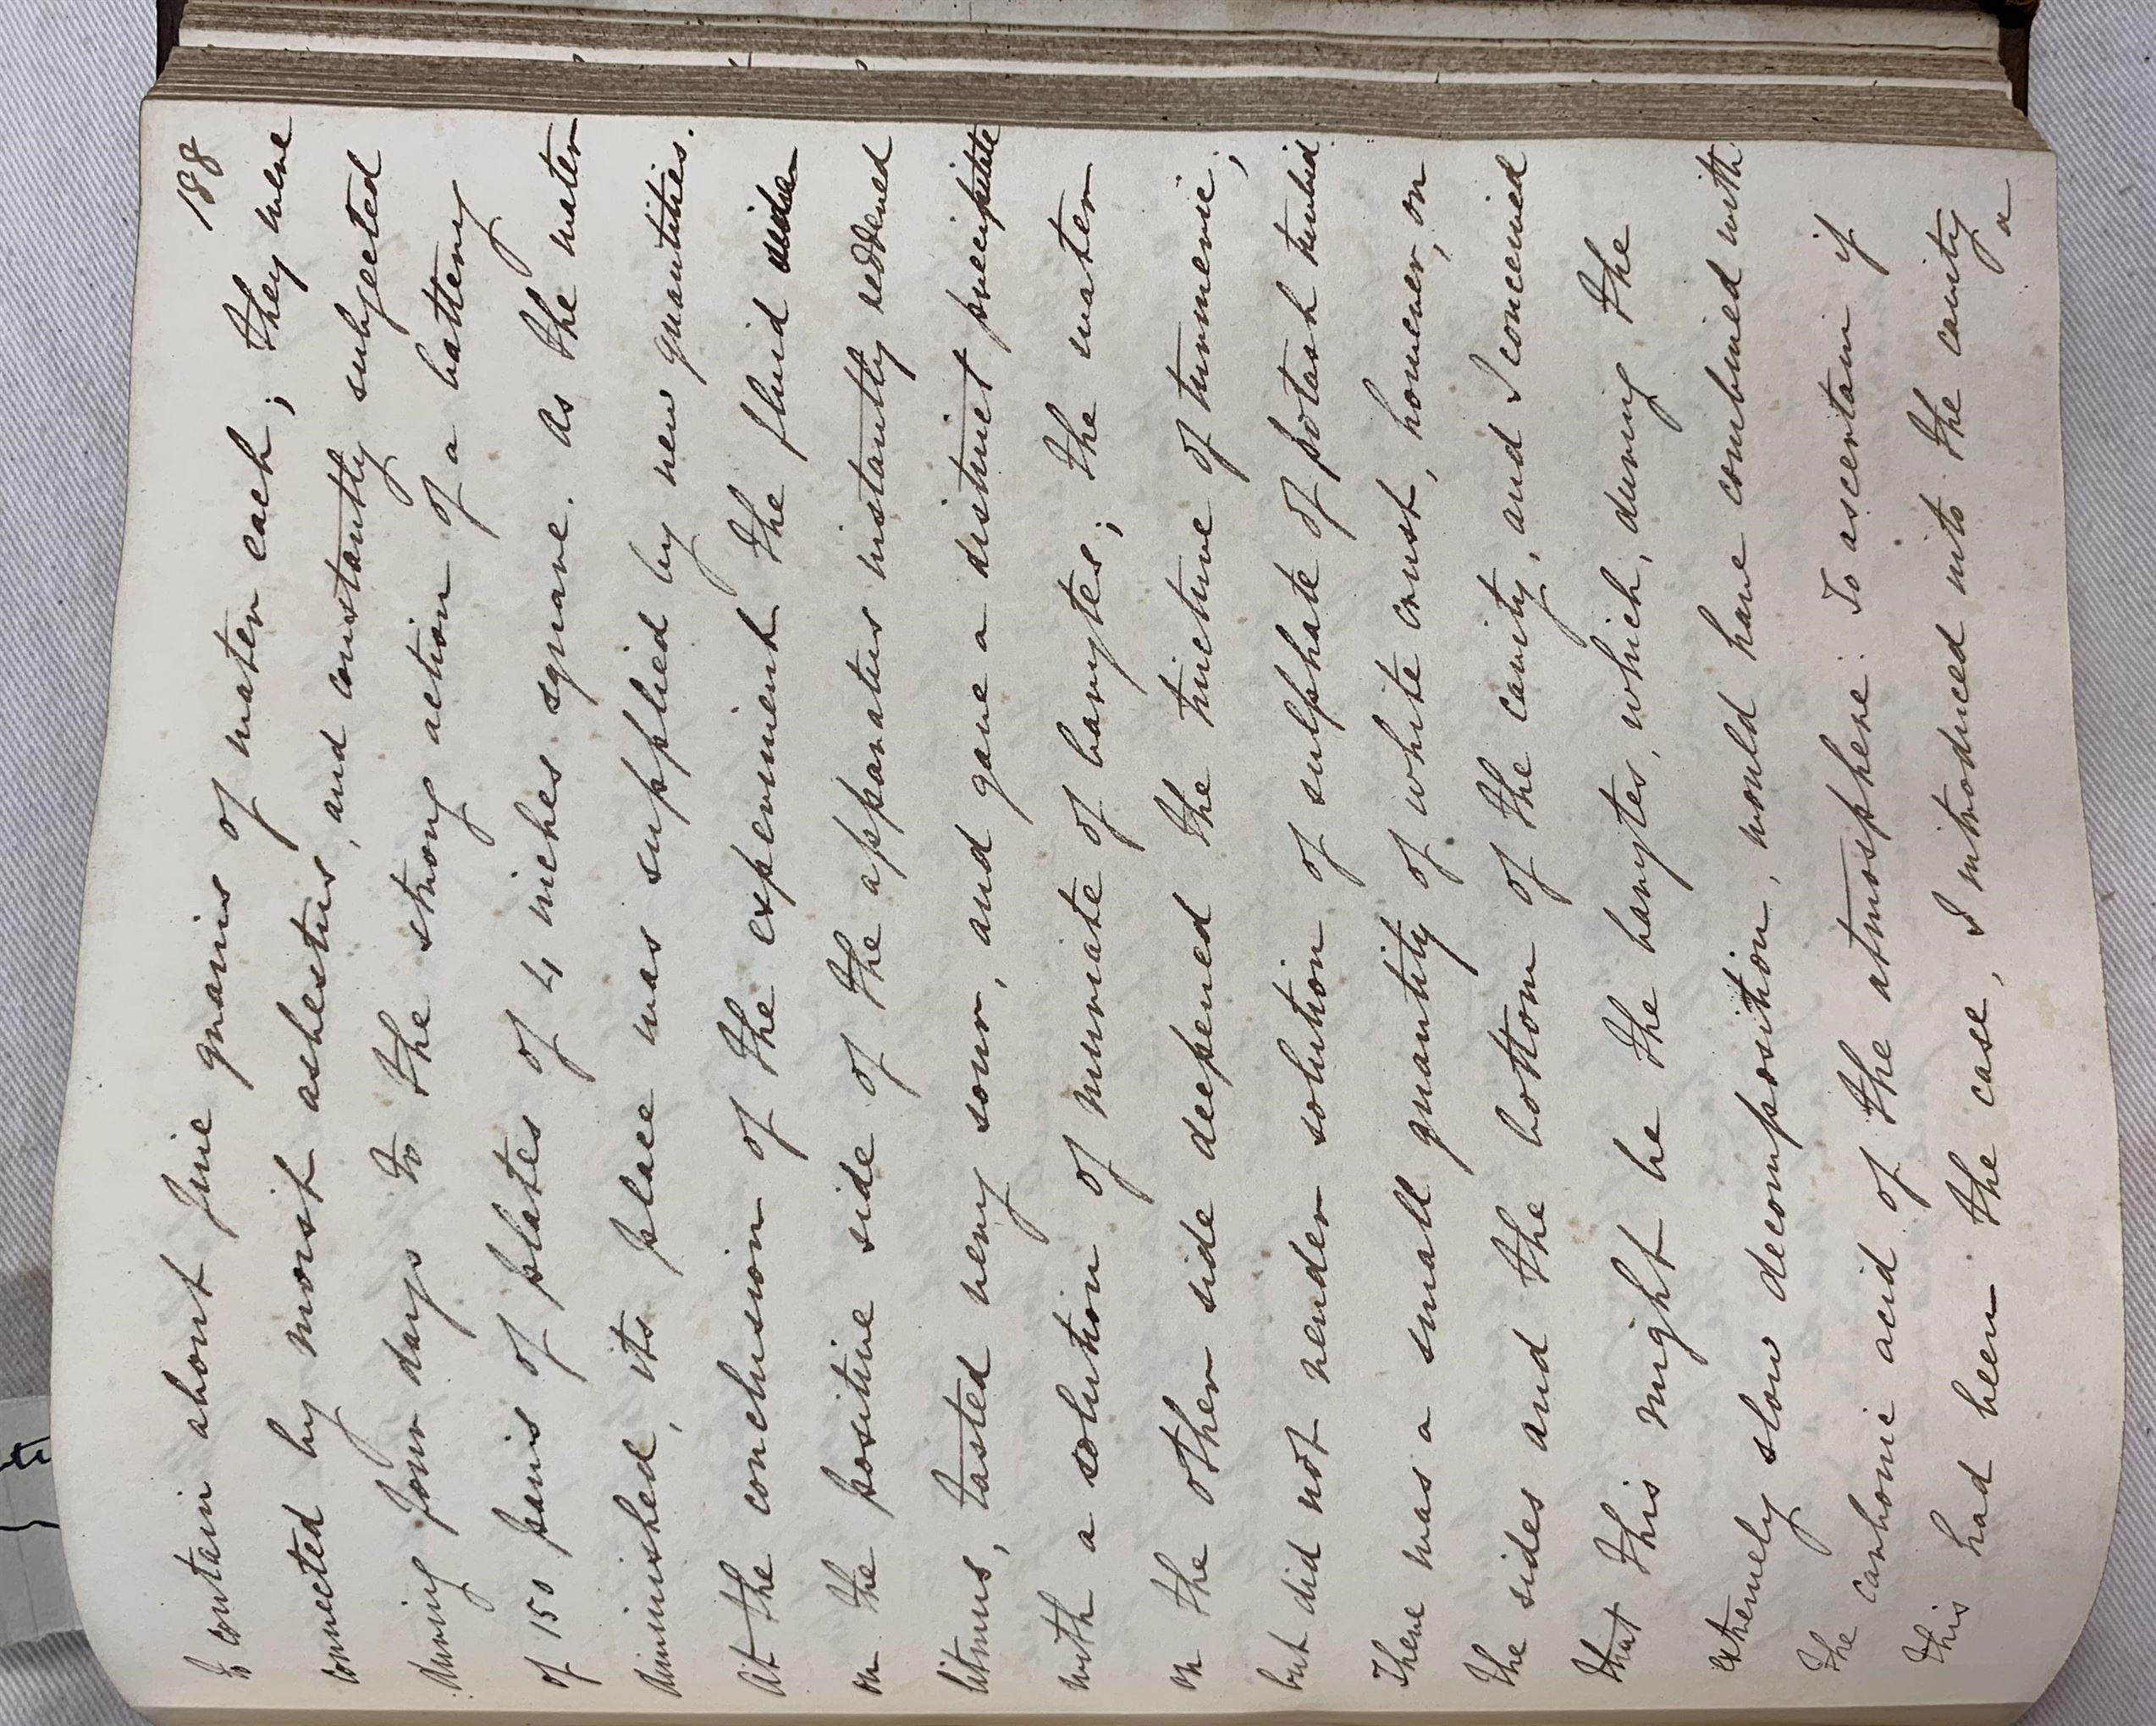 188
to contain about five grains of water each; they were
connected by moist asbestus, and constantly subjected
during four days to the strong action of a battery
of 150 pairs of plates of 4 inches square. As the water
diminished, its place was supplied by new quantities.
At the conclusion of the experiment the fluid
on the positive side of the apparatus instantly reddened
litmus, tasted very sour, and gave a distinct precipitate
with a solution of muriate of barytes; the water
on the other side deepened the tincture of turmeric;
but did not render solution of sulphate of potash turbid.
There was a small quantity of white crust, however, on
the sides and the bottom of the cavity, and I conceived
that this might be the barytes, which, during the
extremely slow decomposition, would have combined with
the carbonic acid of the atmosphere. To ascertain if
this had been the case, I introduced into the cavity
a